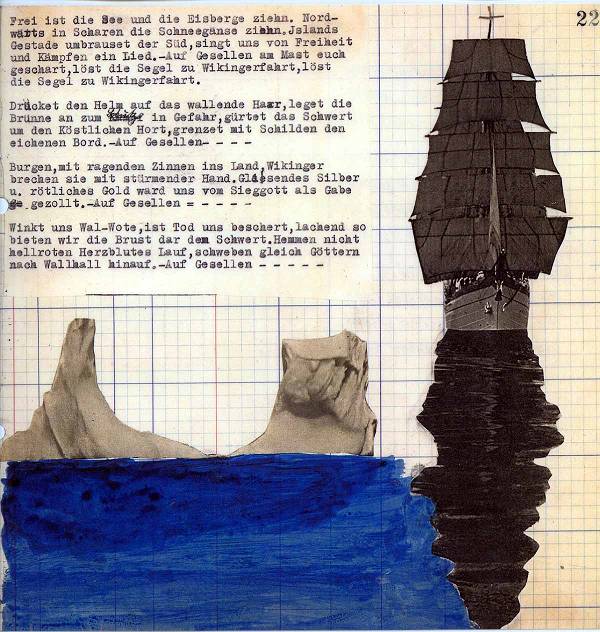 22
Frei ist die See und die Eisberge ziehn. Nord-
wärts in Scharen die Schneegänse ziehn.Jslands
Gestade umbrauset der Süd,singt uns von Freiheit
und Kämpfen ein Lied.-Auf Gesellen am Mast euch
geschart,löst die Segel zu Wikingerfahrt,löst
die Segel zu Wikingerfahrt.
Drücket den Helm auf das wallende Haar,leget die
Brünne an zum Schutze in Gefahr,gürtet das Schwert
um den Köstlichen Hort,grenzet mit Schilden den
eichenen Bord.-Auf Gesellen- - - -
Burgen,mit ragenden Zinnen ins Land,Wikinger
brechen sie mit stürmender Hand.Gleisendes Silber
u. rötliches Gold ward uns vom Sieggott als Gabe
gezollt.-Auf Gesellen = - - - -
Winkt uns Wal-Wote,ist Tod uns beschert,lachend so
bieten wir die Brust dar dem Schwert.Hemmen nicht
hellroten Herzblutes Lauf,schweben gleich Göttern
nach Wallhall hinauf.-Auf Gesellen - - - - - -